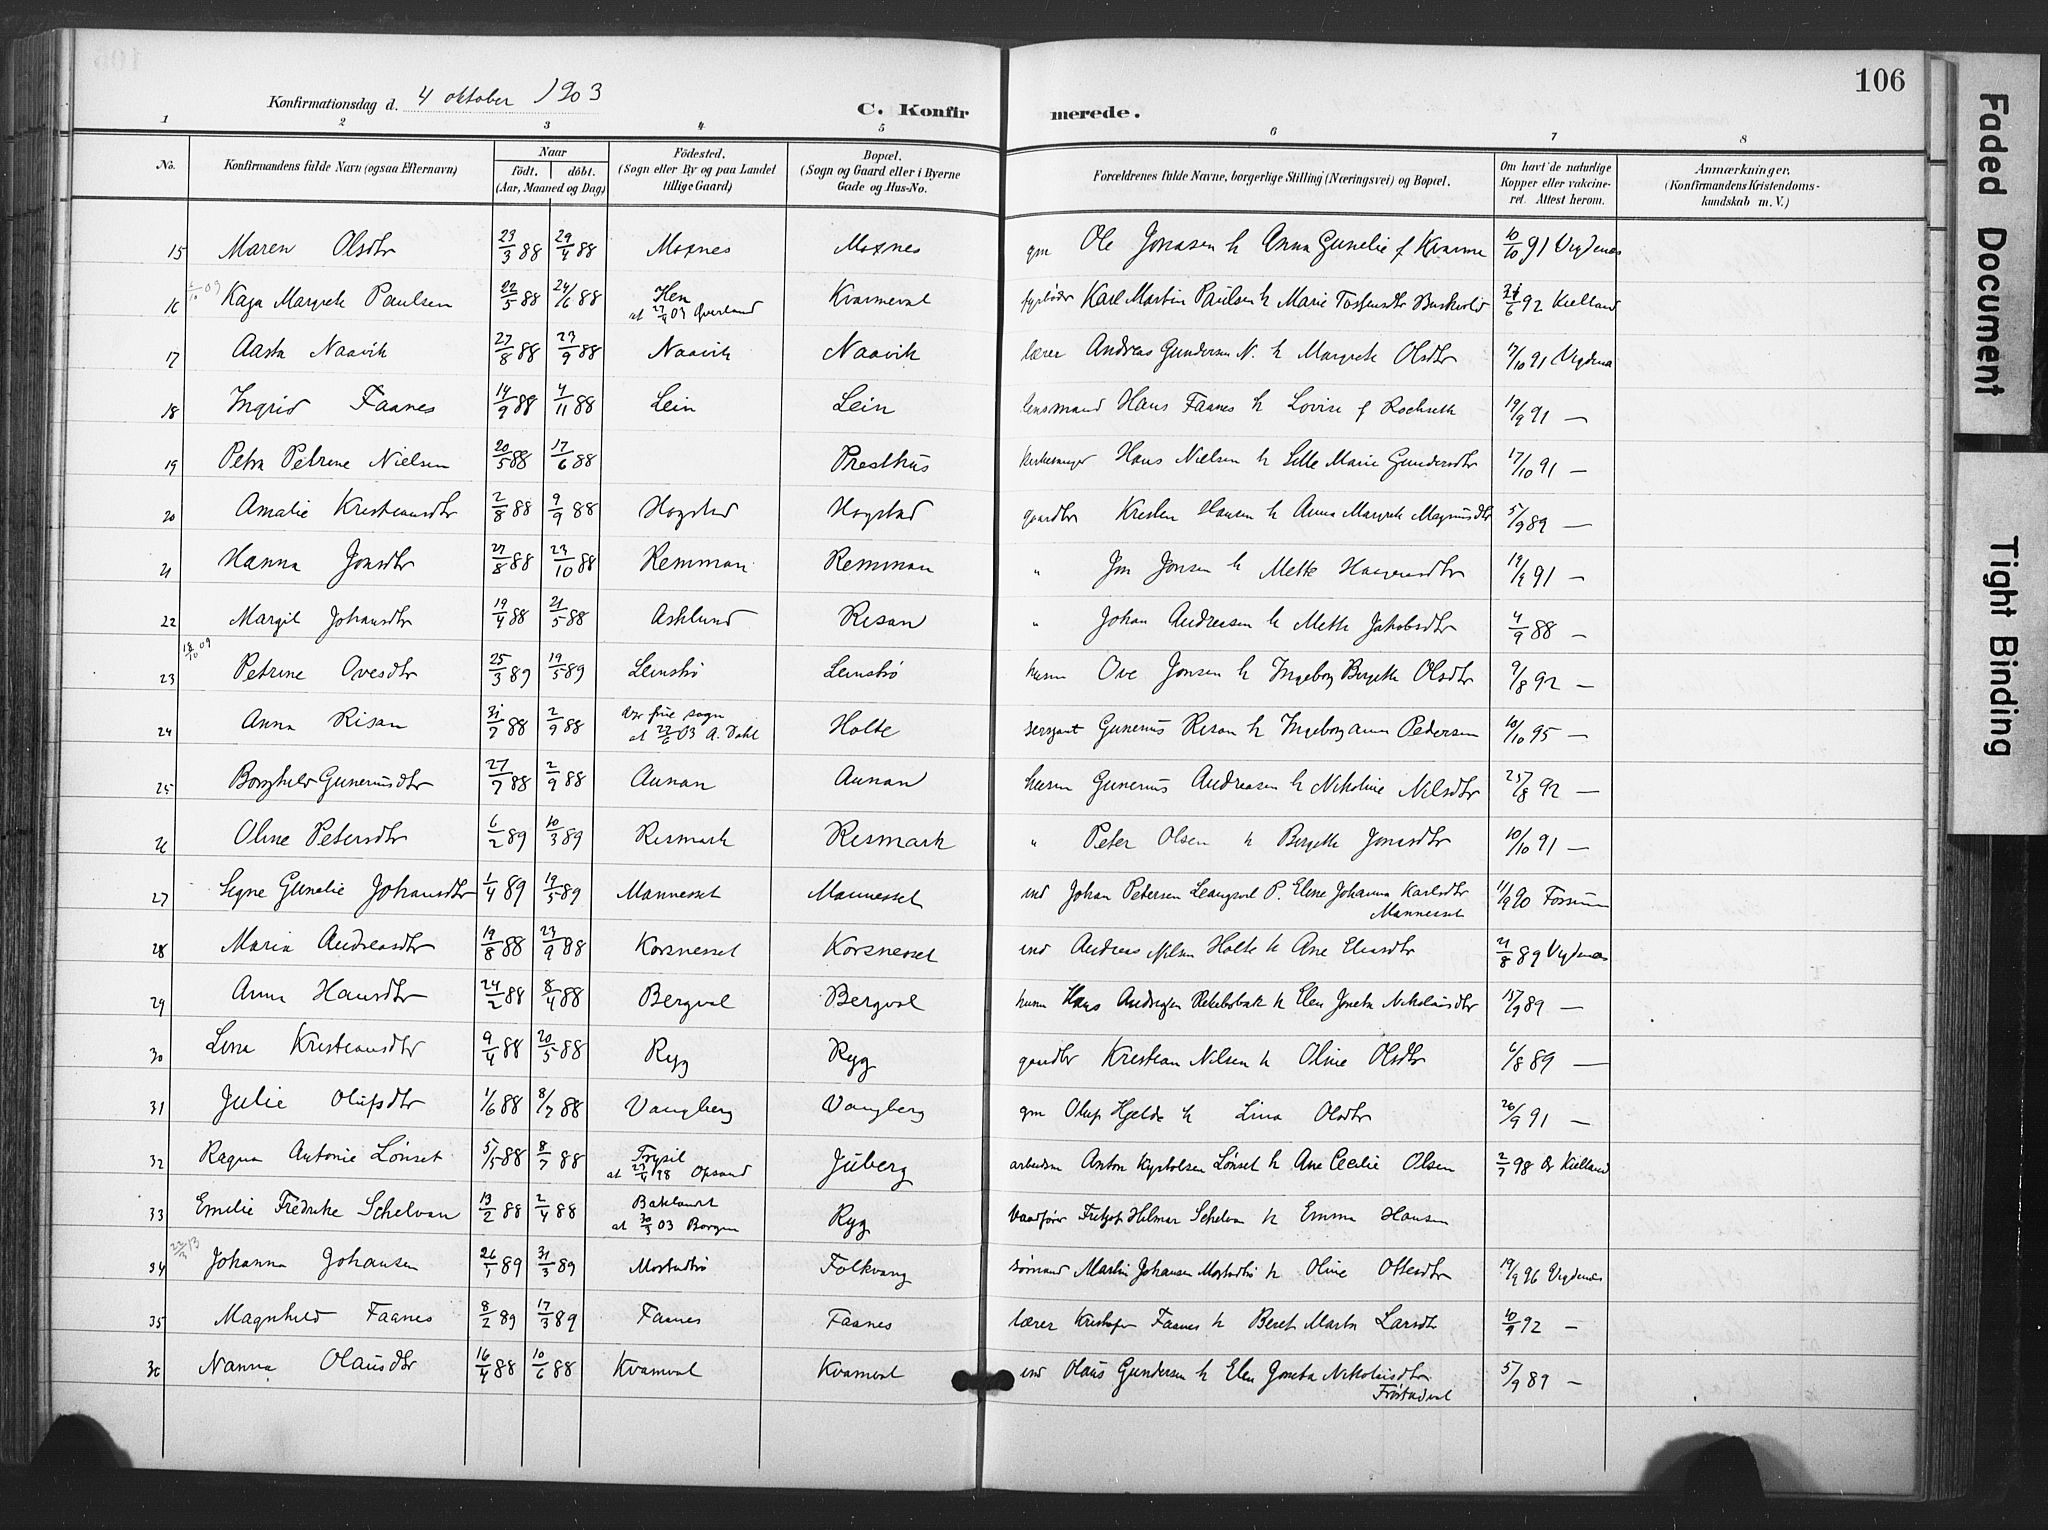 106
Konfirmationsdag d. 4 oktober 1903
C. Konfir merede.
1 2 3 4 5 6 7 8
No.
Konfirmandens fulde Navn (ogsaa Efternavn)
Naar
født. døbt.
(Aar, Maaned og Dag)
Fødested.
(Sogn eller By og paa Landet
tillige Gaard)
Bopæl.
(Sogn og Gaard eller i Byerne
Gade og Hus-No.
Forældrenes fulde Navne, borgerlige Stilling (Næringsvei) og Bopæl.
Om havt de naturlige
Kopper eller vakcine-
ret. Attest herom.
Anmærkninger.
(Konfirmandens Kristendoms-
kundskab m. V.)
15 Maren Olsdtr 23/3 88 29/4 88 Moxnes Moxnes gm Ole Jonasen h Anna Gunelie f Kvamme 10/10 91 Vigdenes
16 Kaja Margrete Paulsen 22/5 88 24/6 88 Hen at 23/4 03 Kvarmeval fyrbøder Karl Martin Paulsen h Marie 6 92 Kielland
17 Aasta Naavik 27/8 88 23/9 88 Naavik Naavik lærer Andreas Gundersen N. h Margrete Olsdtr 17/10 91 Vigdenes
18 Ingrid Faanes 14/9 88 4/11 88 Lein Lein lensmand Hans Faanes h Lovise f Rochseth 19/9 91 —
19 Petra Petrine Nielsen 20/5 88 17/6 88 Presthus kirkesanger Hans Nielsen h Lille Marie Gundersdtr 17/10 91 —
20 Amalie Kristiansdtr 2/8 88 9/9 88 Hogstad Hogstad gaardbr Kristen Hansen h Anna Margrete Magnusdtr 5/9 89 —
21 Hanna Jonsdtr 27/8 88 23/10 88 Remman Remman " Jon Jonsen h Mette Haagensdtr 19/9 91 —
22 Margit Johansdtr 19/4 88 21/5 88 Asklund Risan " Johan Andreasen h Mette Jakobsdtr 4/9 88 —
18/10 09
23 Petrine Ovesdtr 25/3 89 19/5 89 Leinstrø Leinstrø husm Ove Jonsen h Ingeborg Bergette Olsdtr 9/8 92 —
24 Anna Risan 31/7 88 2/9 88 Vor frue sogn at 22/6 03 A. Dahl Holte sersjant Gunerius Risan h Ingeborg Anna Pedersen 10/10 95 —
25 Borghild Guneriusdtr 27/7 88 2/9 88 Aunan Aunan husm Gunerius Andreasen h Nikoline Nilsdtr 25/8 92 —
26 Oline Petersdtr 6/2 89 10/3 89 Rismark Rismark " Peter Olsen h Bergette Jonasdtr 10/10 91 —
27 Signe Gunelie Johansdtr 1/4 89 19/5 89 Mannesset Mannesset ind Johan Petersen P. Eline Johanna Karlsdtr 11/9 90
Mannesset
28 Maria Andreasdtr 19/8 88 23/9 88 Korsnesset Korsnesset ind Andreas Nilsen Holte h Ane Eliasdtr 21/8 89 Vigdenes
29 Anna Hansdtr 24/2 88 8/4 88 Bergval Bergval husm Hans h Elen Joneta Nikolaisdtr 15/9 89 —
30 Lina Kristiansdtr 9/4 88 20/5 88 Ryg Ryg gaardbr Kristian Nilsen h Oline Olsdtr 6/8 89 —
31 Julie Olufsdtr 1/6 88 8/7 88 Vangberg Vangberg gm Oluf Hjelde h Lina Olsdtr 26/9 91 —
32 Ragna Antonie Lønset 5/5 88 8/7 88 Trysil at 27/4 98 Opsand Juberg arbeidsm Anton Lønset h Ane Cecilie Olsen 2/7 98 Dr Kielland
33 Emilie Fredrikke Schelvan 13/2 88 2/4 88 Baklandet at 30/3 03 Borgen Ryg Fritjof Hilmar Schelvan h Emma Hansen
22/3 13
34 Johanna Johansen 26/1 89 31/3 89 Mostadtrø Folkvang sømand Martin Johansen Mostadtrø h Oline Ottesdtr 19/9 96 Vigdenes
35 Magnhild Faanes 8/2 89 17/3 89 Faanes Faanes lærer Kristofer Faanes h Beret Marta Larsdtr 10/9 92 —
36 Nanna Olausdtr 16/4 88 10/6 88 Kvamval Kvamval ind Olaus Gundersen h Elen Joneta Nikolaisdtr 5/9 89 —
Faded Document
Tight Binding